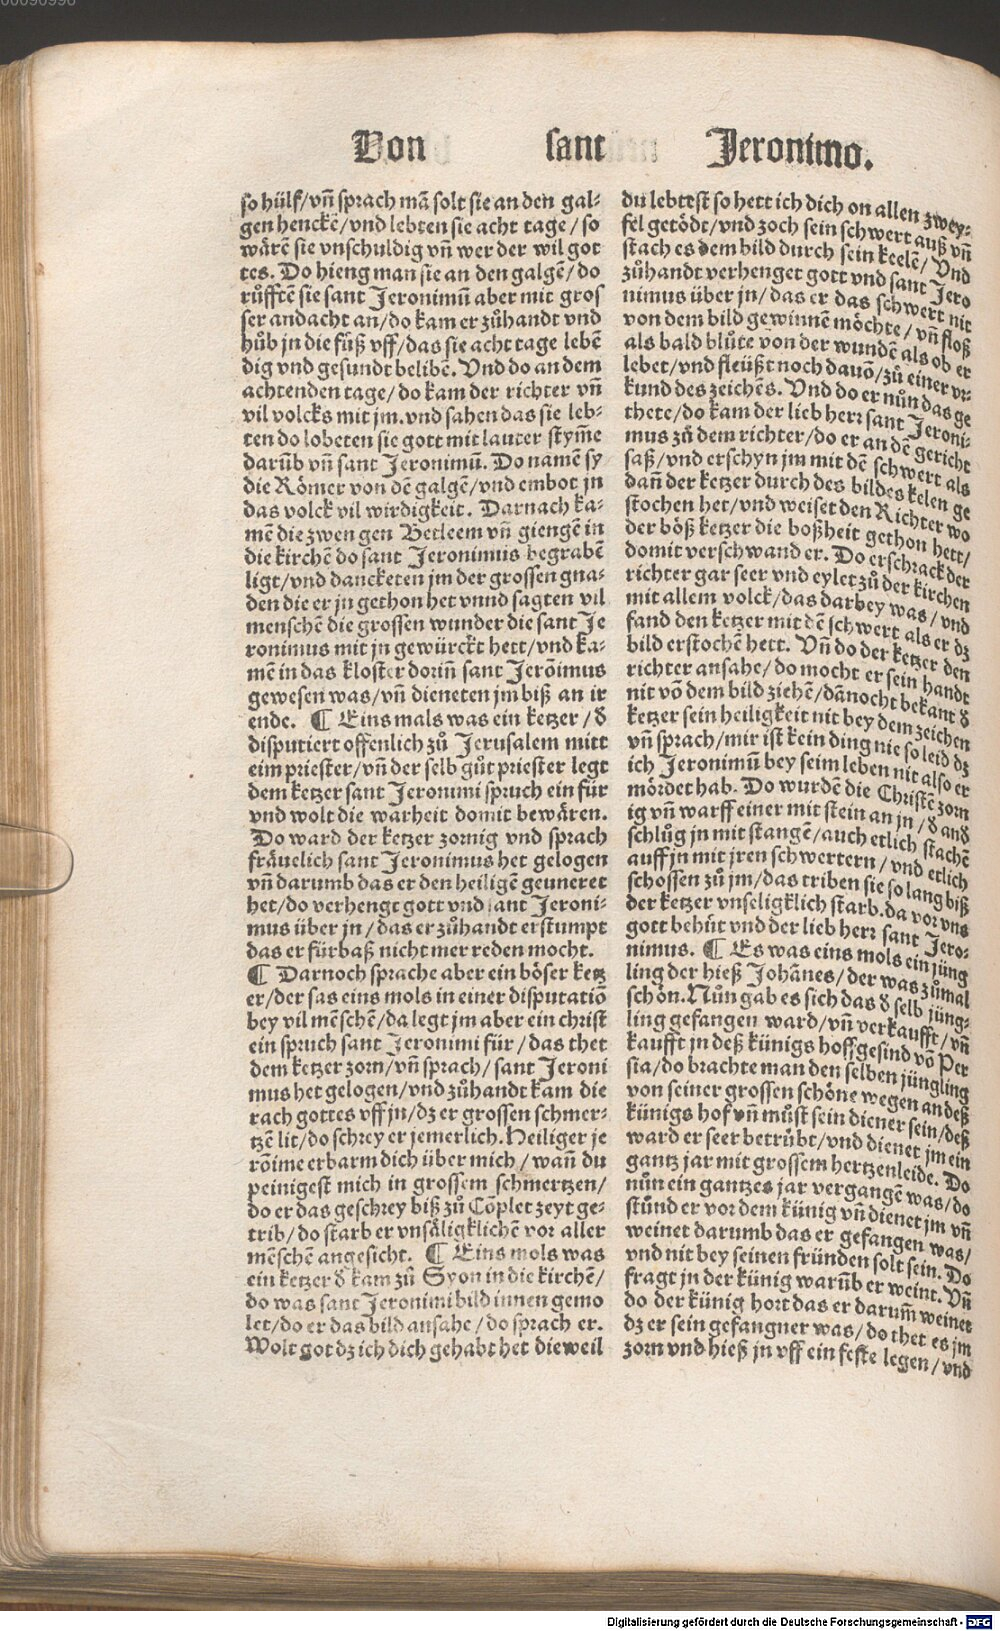 00090990
Von sant Jeronimo.
so hülf/vn̄ sprach mā solt sie an den gal-
gen henckē/vnd lebten sie acht tage/so
wärē sie vnschuldig vn̄ wer der wil got
tes. Do hieng man sie an den galgē/do
růfftē sie sant Jeronimū aber mit gros
ser andacht an/do kam er zůhandt vnd
hůb jn die füß vff/das sie acht tage lebē
dig vnd gesundt belibē. Vnd do an dem
achtenden tage/do kam der richter vn̄
vil volcks mit jm.vnd sahen das sie leb-
ten do lobeten sie gott mit lauter stym̄e
darūb vn̄ sant Jeronimū. Do namē sy
die Römer von dē galgē/vnd embot jn
das volck vil wirdigkeit. Darnach ka-
mē die zwen gen Betleem vn̄ giengē in
die kirchē do sant Jeronimus begrabē
ligt/vnd dancketen jm der grossen gna-
den die er jn gethon het vnnd sagten vil
menschē die grossen wunder die sant Je
ronimus mit jn gewürckt hett/vnd ka-
mē in das kloster dorin̄ sant Jerōimus
gewesen was/vn̄ dieneten jm biß an ir
ende. ¶ Eins mals was ein ketzer/d̕
disputiert offenlich zů Jerusalem mitt
eim priester/vn̄ der selb gůt priester legt
dem ketzer sant Jeronimi spruch ein für
vnd wolt die warheit domit bewären.
Do ward der ketzer zornig vnd sprach
fräuelich sant Jeronimus het gelogen
vn̄ darumb das er den heiligē geuneret
het/do verhengt gott vnd sant Jeroni-
mus über jn/das er zůhandt erstumpt
das er fürbaß nicht mer reden mocht.
¶ Darnoch sprache aber ein böser ketz
er/der sas eins mols in einer disputatiō
bey vil mēschē/da legt jm aber ein christ
ein spruch sant Jeronimi für/das thet
dem ketzer zorn/vn̄ sprach/sant Jeroni
mus het gelogen/vnd zůhandt kam die
rach gottes vff jn/dz er grossen schmer-
tzē lit/do schrey er jemerlich.Heiliger je
rōime erbarm dich über mich/wan̄ du
peinigest mich in grossem schmertzen/
do er das geschrey biß zů Cōplet zeyt ge-
trib/do starb er vnsäligklichē vor aller
mēschē angesicht. ¶ Eins mols was
ein ketzer d̕ kam zů Syon in die kirchē/
do was sant Jeronimi bild innen gemo
let/do er das bild ansahe/do sprach er.
Wolt got dz ich dich gehabt het die weil
du lebtest so hett ich dich on allen zwey-
fel getödt/vnd zoch sein schwert auß vn̄
stach es dem bild durch sein keelē/Vnd
zůhandt verhenget gott vnd sant Jero
nimus über jn/das er das schwert nit
von dem bild gewinnē möchte/vn̄ floß
als bald blůte von der wundē als ob er
lebet/vnd fleüßt noch dauō/zů einer vr-
kund des zeichēs. Vnd do er nůn das ge
thete/do kam der lieb herr sant Jeroni-
mus zů dem richter/do er an dē gericht
saß/vnd erschyn jm mit dē schwert als
dan̄ der ketzer durch des bildes kelen ge
stochen het/vnd weiset den Richter wo
der böß ketzer die boßheit gethon hett/
domit verschwand er. Do erschrack der
richter gar seer vnd eylet zů der kirchen
mit allem volck/das darbey was/vnd
fand den ketzer mit dē schwert als er dz
bild erstochē hett. Vn̄ do der ketzer den
richter ansahe/do mocht er sein handt
nit vō dem bild ziehē/dānocht bekant d̕
ketzer sein heiligkeit nit bey dem zeichen
vn̄ sprach/mir ist kein ding nie so leid dz
ich Jeronimū bey seim leben nit also er
mördet hab. Do wurdē die Christē zorn
ig vn̄ warff einer mit stein an jn/d̕ and̕
schlůg jn mit stangē/auch etlich stachē
auff jn mit jren schwertern/vnd etlich
schossen zů jm/das triben sie so lang biß
der ketzer vnseligklich starb.da vor vns
gott behüt vnd der lieb herr sant Jero-
nimus. ¶ Es was eins mols ein jüng
ling der hieß Johānes/der was zůmal
schön.Nůn gab es sich das d̕ selb jüng-
ling gefangen ward/vn̄ verkaufft/vn̄
kaufft jn deß künigs hoffgesind vō Per
sia/do brachte man den selben jüngling
von seiner grossen schöne wegen an deß
künigs hof vn̄ můst sein diener sein/deß
ward er seer betrübt/vnd dienet jm ein
gantz jar mit grossem hertzenleide. Do
nůn ein gantzes jar vergangē was/do
stůnd er vor dem künig vn̄ dienet jm vn̄
weinet darumb das er gefangen was/
vnd nit bey seinen fründen solt sein. Do
fragt jn der künig warūb er weint. Vn̄
do der künig hort das er darum̄ weinet
dz er sein gefangner was/do thet es jm
zorn vnd hieß jn vff ein feste legen/vnd
Digitalisierung gefördert durch die Deutsche Forschungsgemeinschaft - DFG